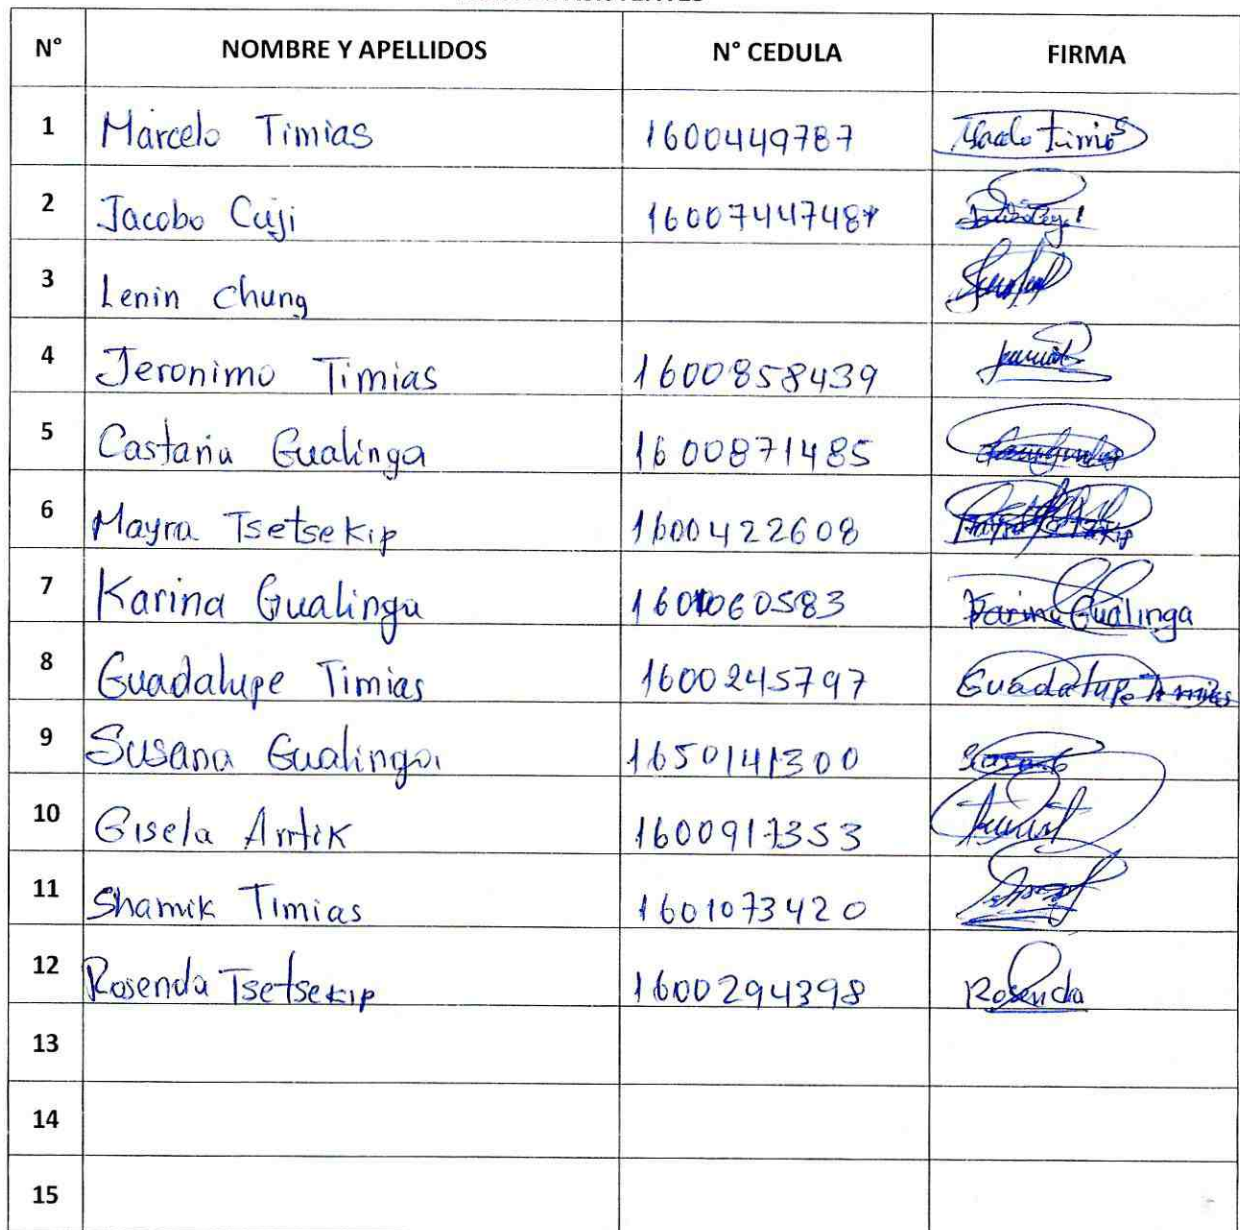 N° NOMBRE Y APELLIDOS N° CEDULA FIRMA
1 Marcelo Timias 1600449787
2 Jacobo Cuji
3 Lenin Chung
4 Jeronimo Timias 1600858439
5 Castaña Gualinga 1600871485
6 Mayra Tsetsekip 1600422608
7 Karina Gualinga 1601060583 Karina Gualinga
8 Guadalupe Timias 1600245797 Guadalupe Timias
9 Susana Gualinga 1650141300
10 Gisela Antik 1600917353
11 Shamik Timias 1601073420
12 Rosenda Tsetsekip 1600294398 Rosenda
13
14
15